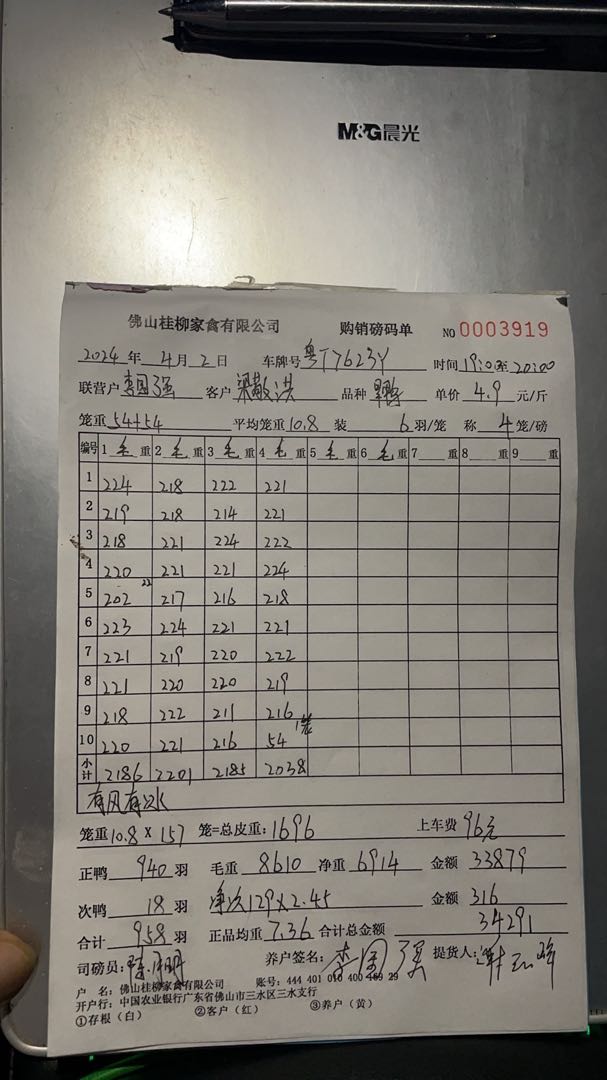 M&G晨光
佛山桂柳家禽有限公司 购销磅码单 NO 0003919
2024年4月2日 车牌号 粤T7623Y 时间 19:00至20:00
联营户 李国强 客户 梁敬洪 品种 单价 4.9 元/斤
笼重 54+54 平均笼重 10.8 装 6 羽/笼 称 4 笼/磅
编号 1 毛 重 2 毛 重 3 毛 重 4 毛 重 5 毛 重 6 毛 重 7 重 8 重 9 重
1 224 218 222 221
2 219 218 214 221
3 218 221 224 222
4 220 221 221 224
5 202 22 217 216 218
6 223 224 221 221
7 221 219 220 222
8 221 220 220 219
9 218 222 211 216
10 220 221 216 54 1笼
小计 2186 2201 2185 2038
有风有水
笼重 10.8 × 157 笼=总皮重: 1696 上车费 96元
正鸭 940 羽 毛重 8610 净重 6914 金额 33879
次鸭 18 羽 净次129×2.45 金额 316
合计 958 羽 正品均重 7.36 合计总金额 34291
司磅员: 养户签名: 李国强 提货人:
户 名: 佛山桂柳家禽有限公司 账号: 444 401 010 400 469 29
开户行: 中国农业银行广东省佛山市三水区三水支行
①存根（白） ②客户（红） ③养户（黄）